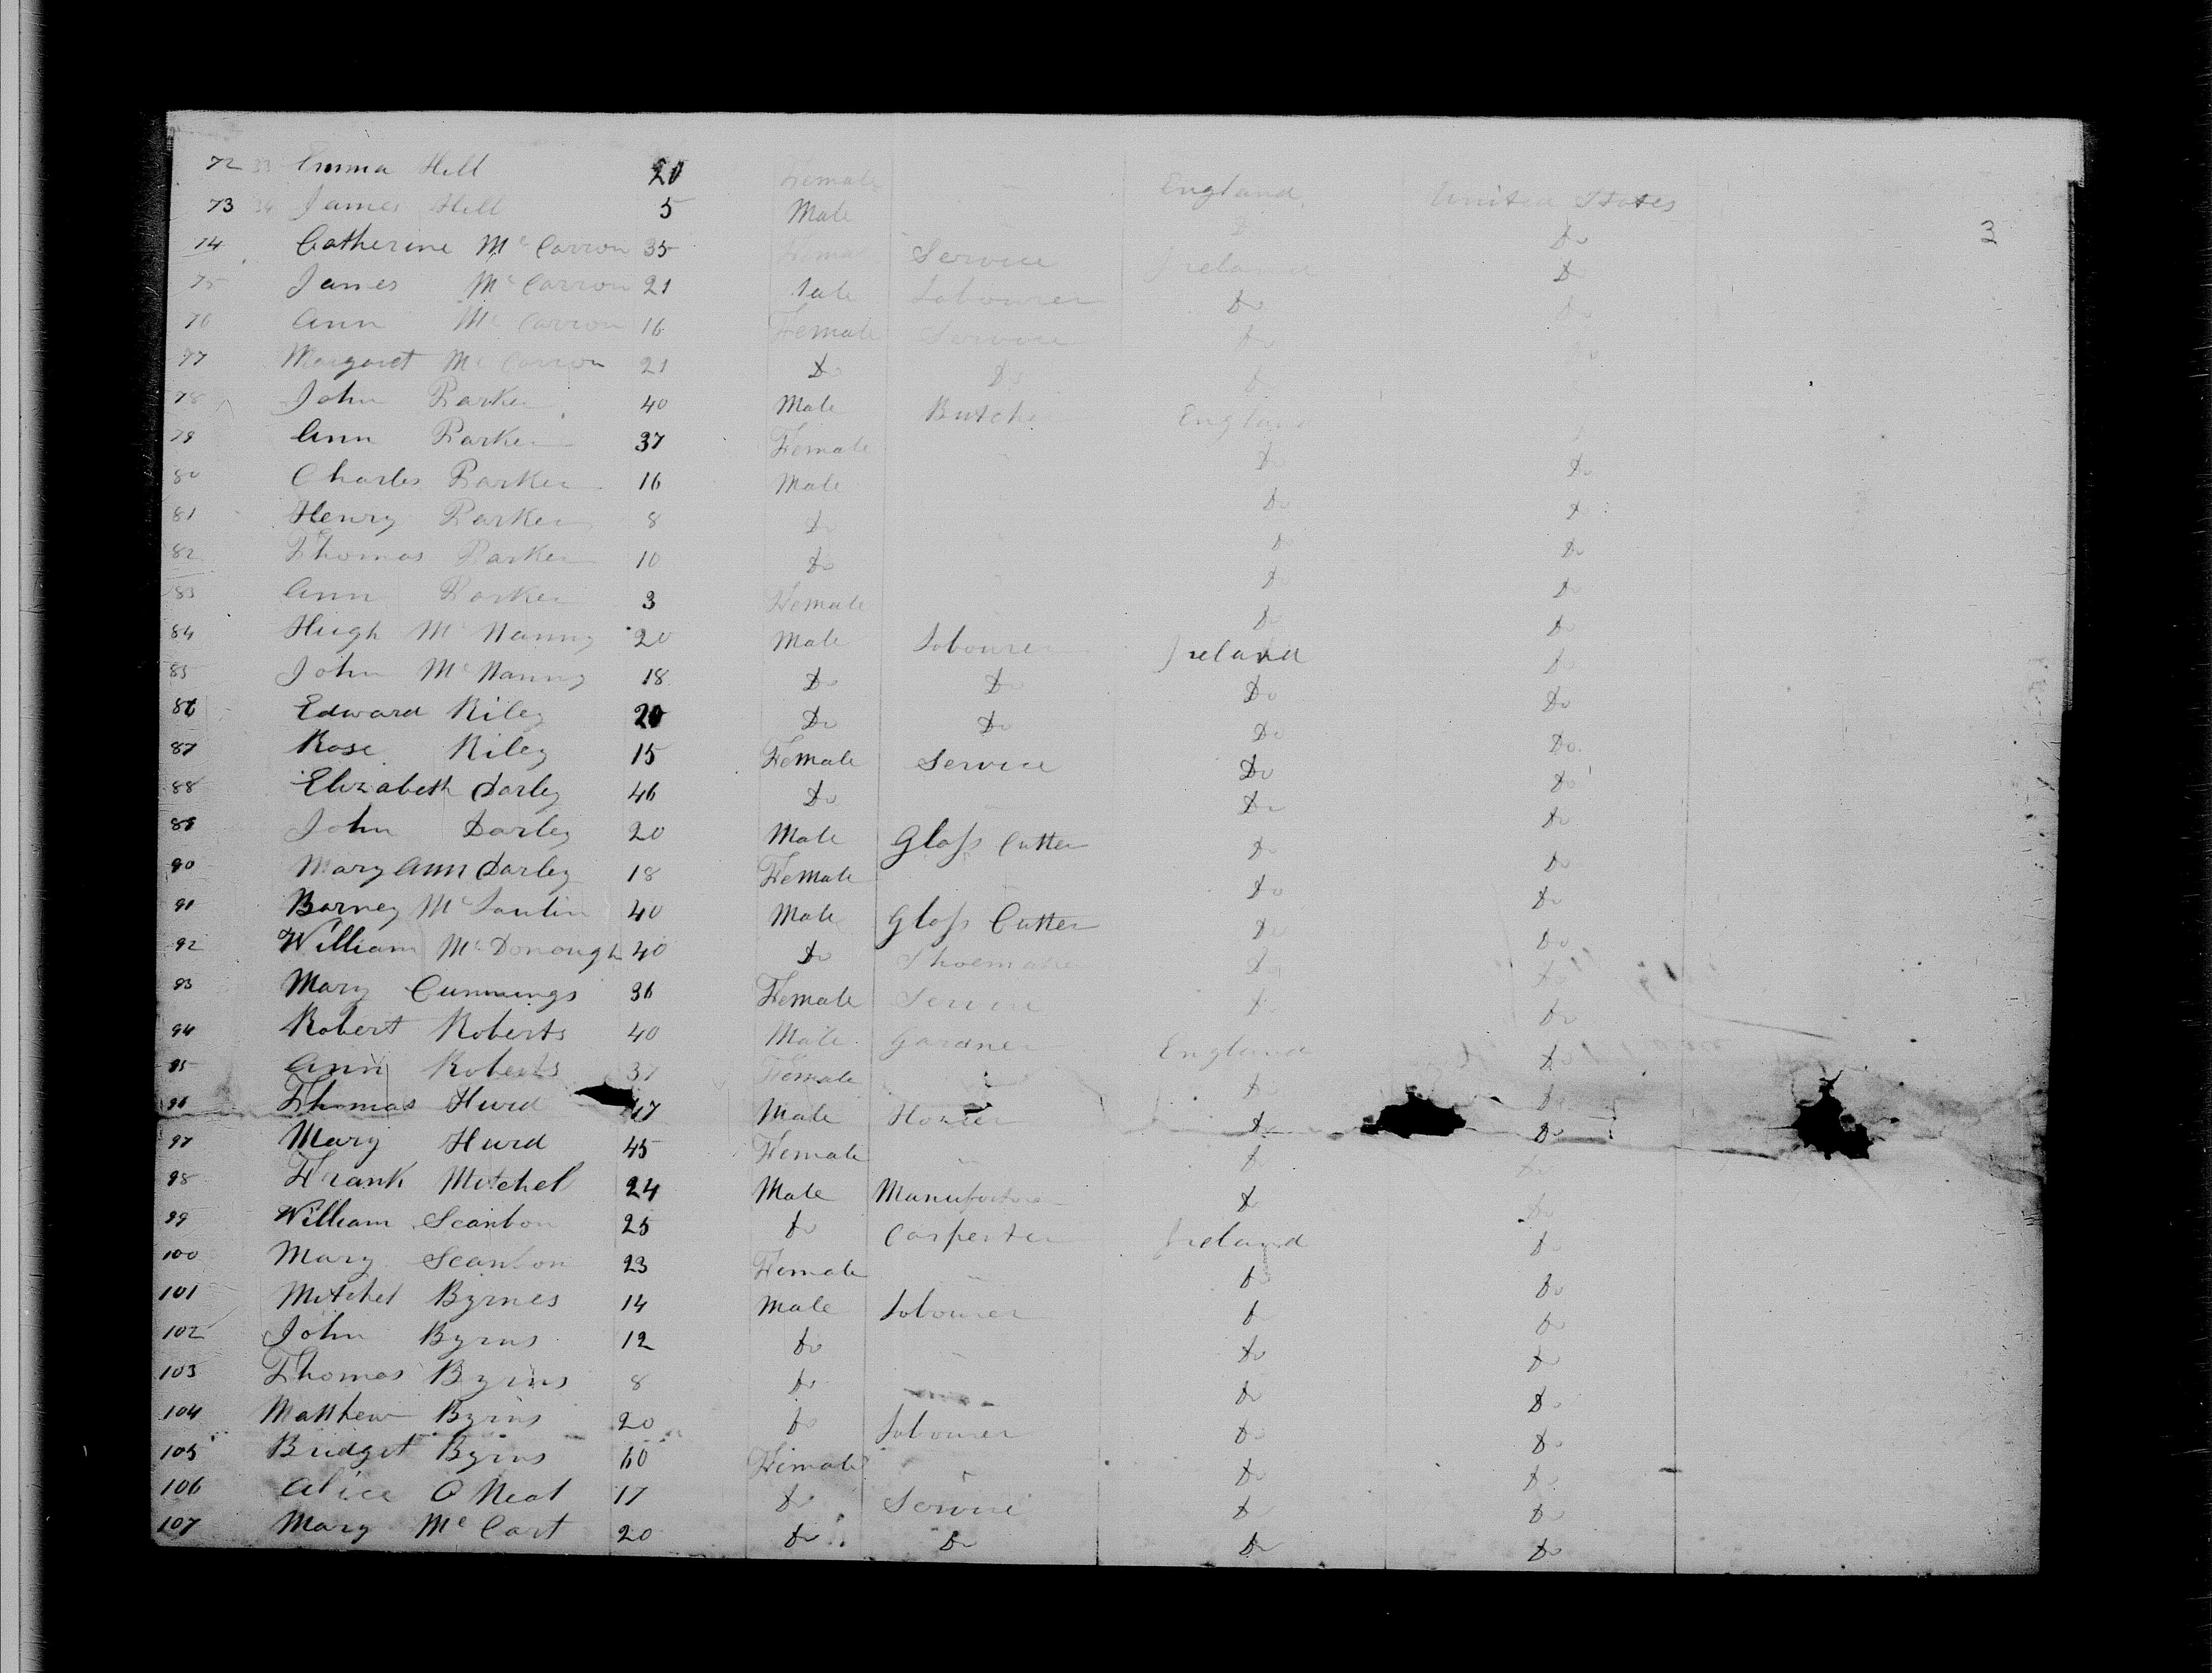 3
72 33 Emma Hill 20 Female " England United States
73 34 James Hill 5 Male " Do Do
74 Catherine McCarron 35 Female Service Ireland Do
75 James McCarron 21 Male Labourer Do Do
76 Ann McCarron 16 Female Service Do Do
77 Margaret McCarron 21 Do Do Do
78 John Parker 40 Male Butcher England
79 Ann Parker 37 Female " Do Do
80 Charles Parker 16 Male Do Do
81 Henry Parker 8 Do Do Do
82 Thomas Parker 10 Do Do Do
83 Ann Parker 3 Female " Do Do
84 Hugh McNanny 20 Male Labourer Ireland Do
85 John McNanny 18 Do Do Do Do
86 Edward Riley 20 Do Do Do Do
87 Rose Riley 15 Female Service Do Do
88 Elizabeth Darley 46 Do " Do Do
89 John Darley 20 Male Glass Cutter Do Do
90 Mary Ann Darley 18 Female " Do Do
91 Barney 40 Male Glass Cutter Do Do
92 William McDonough 40 Do Shoemaker Do Do
93 Mary Cummings 36 Female Service Do Do
94 Robert Roberts 40 Male Gardner England Do
95 Ann Roberts 37 Female " Do Do
96 Thomas Hurd 47 Male Do Do
97 Mary Hurd 45 Female " Do Do
98 Frank Mitchel 24 Male Manufacturer Do Do
99 William Scanlon 25 Do Carpenter Ireland Do
100 Mary Scanlon 23 Female " Do Do
101 Mitchel Byrnes 14 Male Labourer Do Do
102 John Byrns 12 Do " Do Do
103 Thomas Byrns 8 Do " Do Do
104 Matthew Byrns 20 Do Labourer Do Do
105 Bridget Byrns 60 Female " Do Do
106 Alice O Neal 17 Do Service Do Do
107 Mary McCart 20 Do Do Do Do